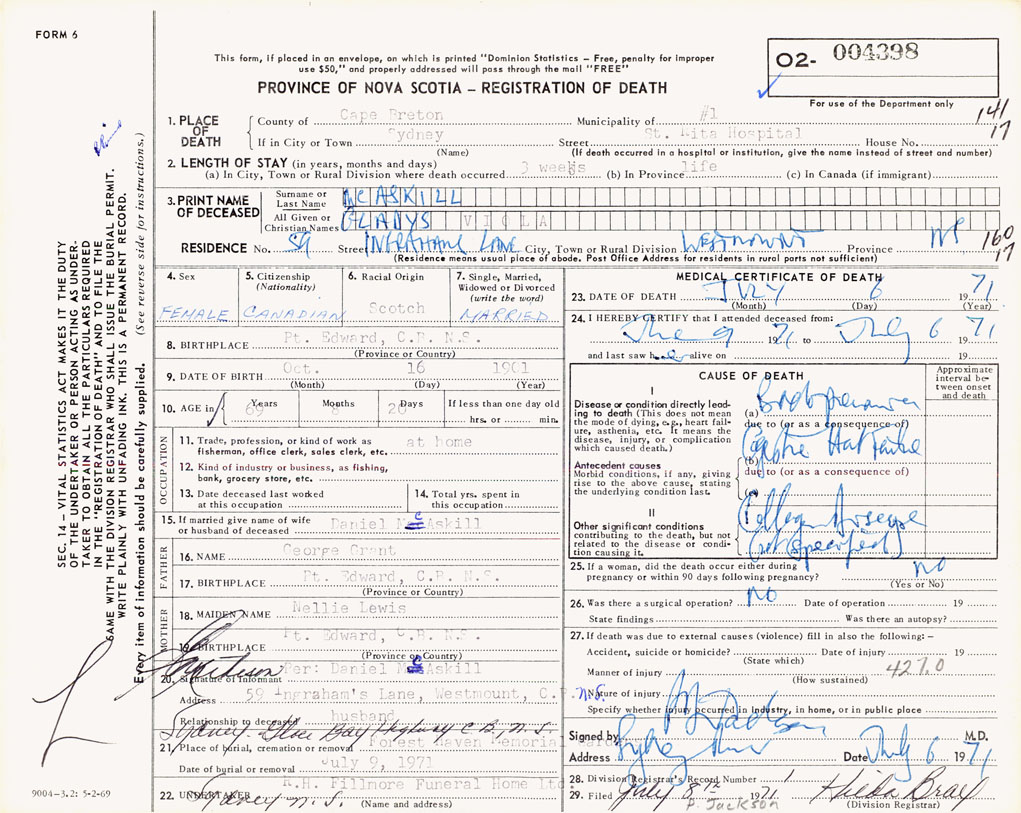 FORM 6
O2- 004398
This form, if placed in an envelope, on which is printed "Dominion Statistics – Free, penalty for improper
use $50," and properly addressed will pass through the mail "FREE"
PROVINCE OF NOVA SCOTIA – REGISTRATION OF DEATH
For use of the Department only
141
17
1. PLACE OF DEATH
County of Cape Breton Municipality of #1
If in City or Town Sydney Street St. Rita Hospital House No.
(Name) (If death occurred in a hospital or institution, give the name instead of street and number)
2. LENGTH OF STAY (in years, months and days)
(a) In City, Town or Rural Division where death occurred 3 weeks (b) In Province life (c) In Canada (if immigrant)
3. PRINT NAME OF DECEASED
Surname or Last Name MCASKILL
All Given or Christian Names GLADYS VIOLA
RESIDENCE No. 59 Street INGRAHAMS LANE City, Town or Rural Division WESTMOUNT Province NS
160
17
(Residence means usual place of abode. Post Office Address for residents in rural parts not sufficient)
4. Sex
FEMALE
5. Citizenship
(Nationality)
CANADIAN
6. Racial Origin
Scotch
7. Single, Married,
Widowed or Divorced
(write the word)
MARRIED
8. BIRTHPLACE Pt. Edward, C.B. N.S.
(Province or Country)
9. DATE OF BIRTH Oct. 16 1901
(Month) (Day) (Year)
10. AGE in Years Months Days If less than one day old
69 8 20 hrs. or min.
OCCUPATION
11. Trade, profession, or kind of work as at home
fisherman, office clerk, sales clerk, etc.
12. Kind of industry or business, as fishing,
bank, grocery store, etc.
13. Date deceased last worked
at this occupation
14. Total yrs. spent in
this occupation
15. If married give name of wife
or husband of deceased Daniel McAskill
FATHER
16. NAME George Grant
17. BIRTHPLACE Pt. Edward, C.B. N.S.
(Province or Country)
MOTHER
18. MAIDEN NAME Nellie Lewis
19. BIRTHPLACE Pt. Edward, C.B. N.S.
(Province or Country)
20. Signature of Informant Per: Daniel McAskill
Address 59 Ingraham's Lane, Westmount, C.B. N.S.
Relationship to deceased husband
Sydney Glace Bay Highway C.B., N.S.
21. Place of burial, cremation or removal Forest Haven Memorial Gardens
Date of burial or removal July 9, 1971
22. UNDERTAKER R.H. Fillmore Funeral Home Ltd.
Sydney N.S.
(Name and address)
MEDICAL CERTIFICATE OF DEATH
23. DATE OF DEATH JULY 6 1971
(Month) (Day) (Year)
24. I HEREBY CERTIFY that I attended deceased from:
June 9 1971 to July 6 1971
and last saw her alive on 19
CAUSE OF DEATH
Approximate interval between onset and death
I
Disease or condition directly leading to death (This does not mean the mode of dying, e.g., heart failure, asthenia, etc. It means the disease, injury, or complication which caused death.)
(a) Bronchopneumonia
due to (or as a consequence of)
(b) Congestive Heart Failure
Antecedent causes
Morbid conditions, if any, giving rise to the above cause, stating the underlying condition last.
due to (or as a consequence of)
(c)
II
Other significant conditions
contributing to the death, but not related to the disease or condition causing it.
Collagen Disease
(not specified)
25. If a woman, did the death occur either during
pregnancy or within 90 days following pregnancy? NO
(Yes or No)
26. Was there a surgical operation? NO Date of operation 19
State findings Was there an autopsy?
27. If death was due to external causes (violence) fill in also the following: –
Accident, suicide or homicide? Date of injury 19
(State which)
Manner of injury 427.0
(How sustained)
Nature of injury
Specify whether injury occurred in industry, in home, or in public place
Signed by M.D.
Address Sydney Date July 6 1971
28. Division Registrar's Record Number 1
29. Filed July 8th 1971 Hilda Bray
P. JACKSON (Division Registrar)
SEC. 14 – VITAL STATISTICS ACT MAKES IT THE DUTY
OF THE UNDERTAKER OR PERSON ACTING AS UNDER-
TAKER TO OBTAIN ALL THE PARTICULARS REQUIRED
IN THE "REGISTRATION OF DEATH" AND TO FILE THE
SAME WITH THE DIVISION REGISTRAR WHO SHALL ISSUE THE BURIAL PERMIT.
WRITE PLAINLY WITH UNFADING INK. THIS IS A PERMANENT RECORD.
Every item of information should be carefully supplied. (See reverse side for instructions.)
9004-3.2: 5-2-69